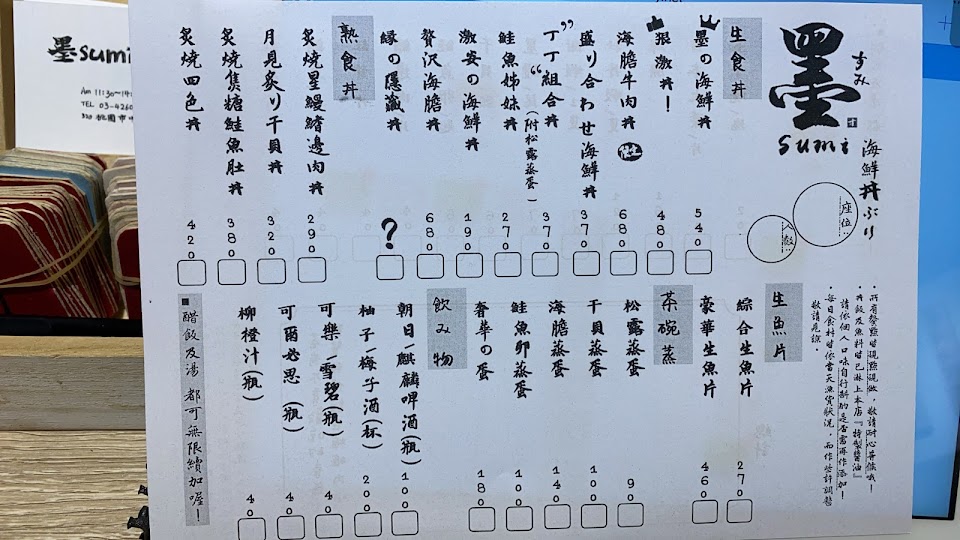 墨
すみ
sumi
海鮮丼ぶり
座位:
人數:
・所有餐點皆現點現做，敬請耐心等候哦！
・丼飯及魚料皆已淋上本店『特製醬油』
請依個人口味自行斟酌是否需再作添加！
・每日食材皆依當天漁貨狀況，而作些許調整
敬請見諒。
生食丼
墨の海鮮丼 540
狠激丼！ 480
海膽牛肉丼 680
盛り合わせ海鮮丼 370
”丁丁“組合丼(附松露蒸蛋) 370
鮭魚姊妹丼 270
激安の海鮮丼 190
贅沢海膽丼 680
縁の隱藏丼 ?
熟食丼
炙燒星鰻鰭邊肉丼 290
月見炙り干貝丼 320
炙燒焦糖鮭魚肚丼 380
炙燒四色丼 420
生魚片
綜合生魚片 270
豪華生魚片 460
茶碗蒸
松露蒸蛋 90
干貝蒸蛋 100
海膽蒸蛋 140
鮭魚卵蒸蛋 100
奢華の蛋 180
飲み物
朝日－麒麟啤酒(瓶) 100
柚子－梅子酒(杯) 200
可樂－雪碧(瓶) 40
可爾必思(瓶) 40
柳橙汁(瓶) 40
■醋飯及湯 都可無限續加喔！
墨sumi
Am 11:30~14:
TEL 03-4260
320 桃園市中